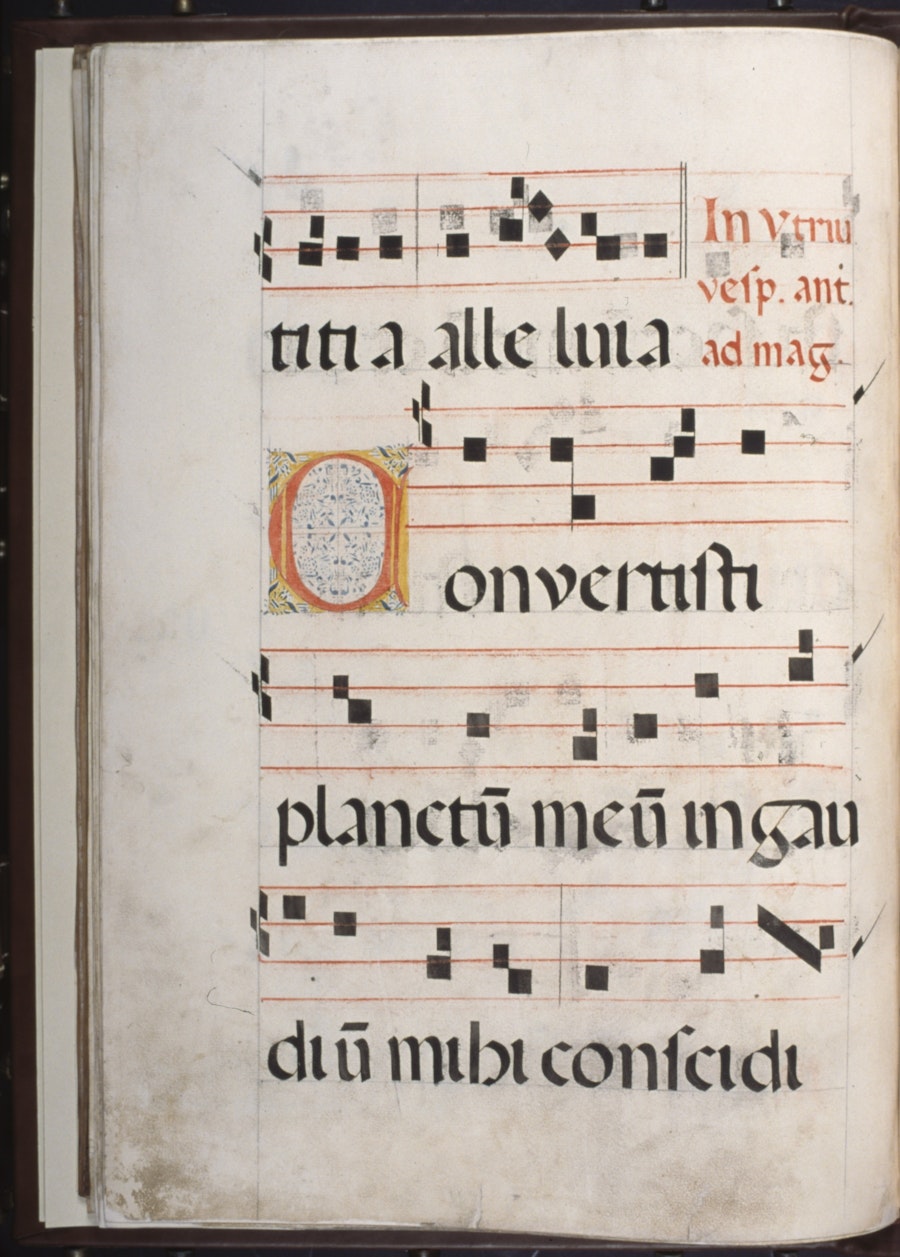 titi a alle luia
In vtriu
vesp. ant.
ad mag.
Convertisti
planctū meū in gau
diū mihi conscidi